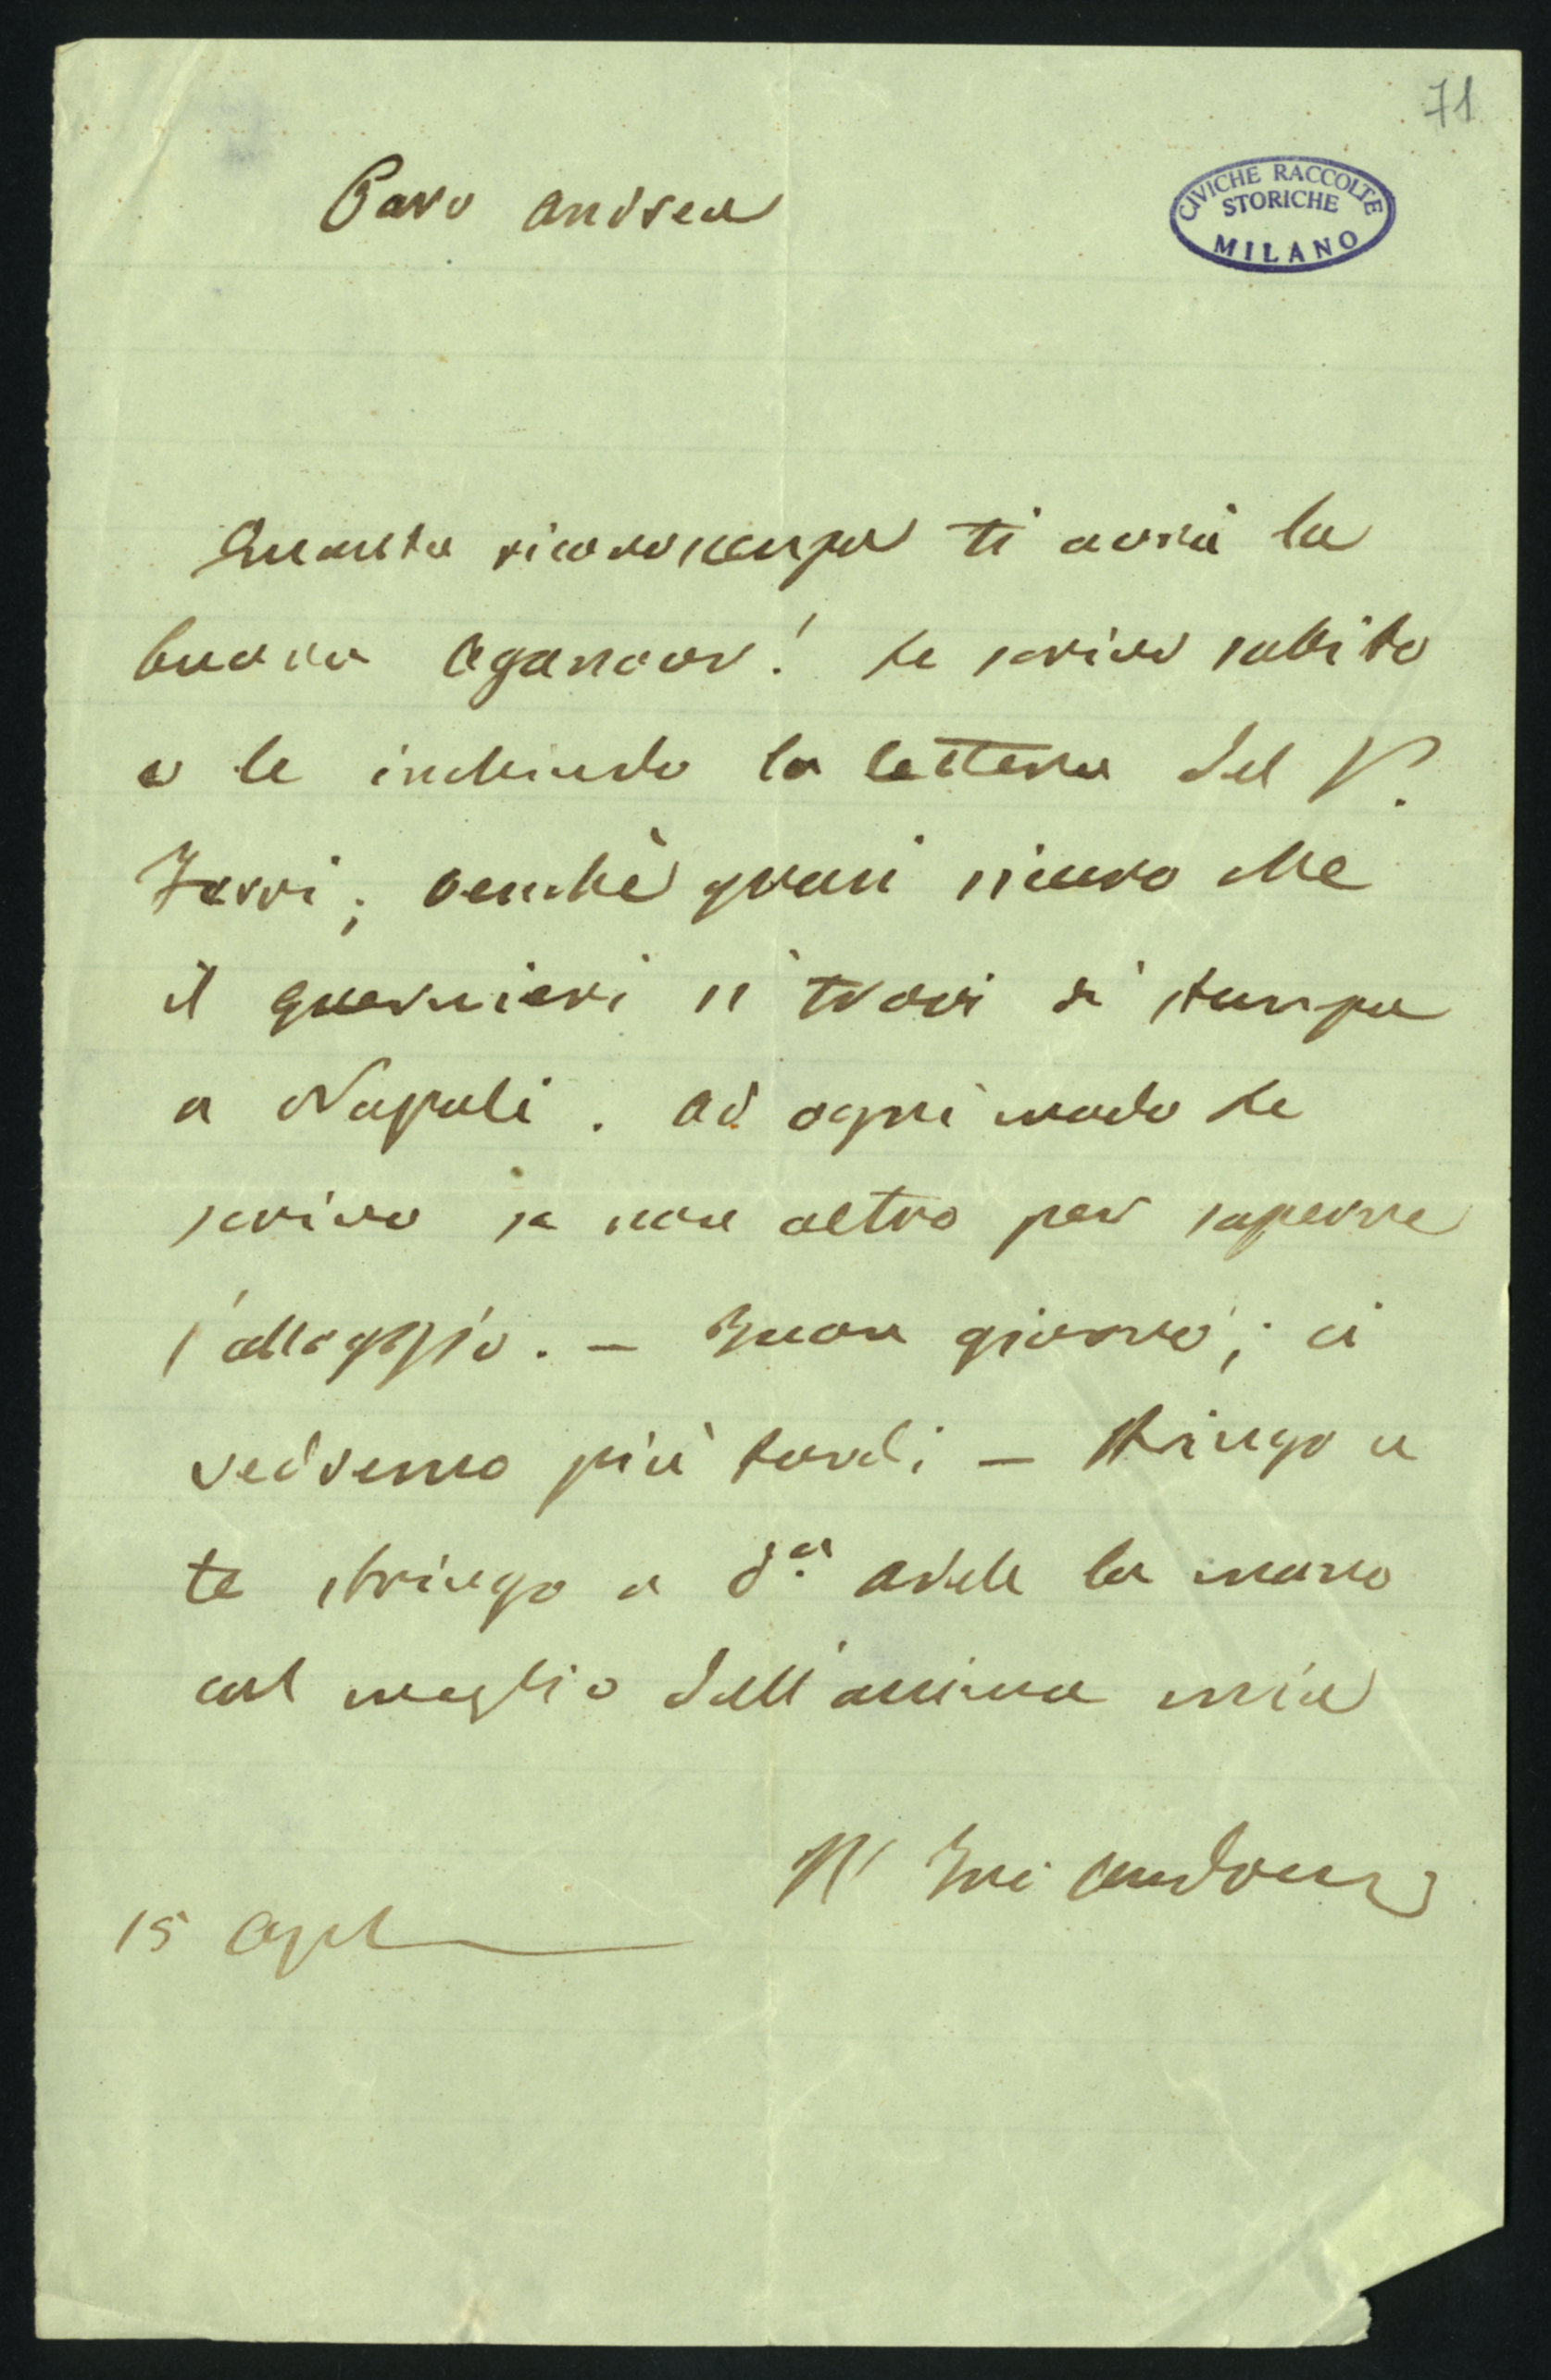 71
CIVICHE RACCOLTE
STORICHE
MILANO
Caro Andrea
Quanta riconoscenza ti avrà la
buona Aganoor! Le scrivo subito
e le inchiudo la lettera del V.
Ferri; benchè quasi sicuro che
il Guarnieri si trovi di stanza
a Napoli. Ad ogni modo le
scrivo se non altro per saperne
l'alloggio. — Buon giorno; ci
vedremo più tardi — Stringo a
te stringo a d.ª Adele la mano
col meglio dell'anima mia
15 Aple